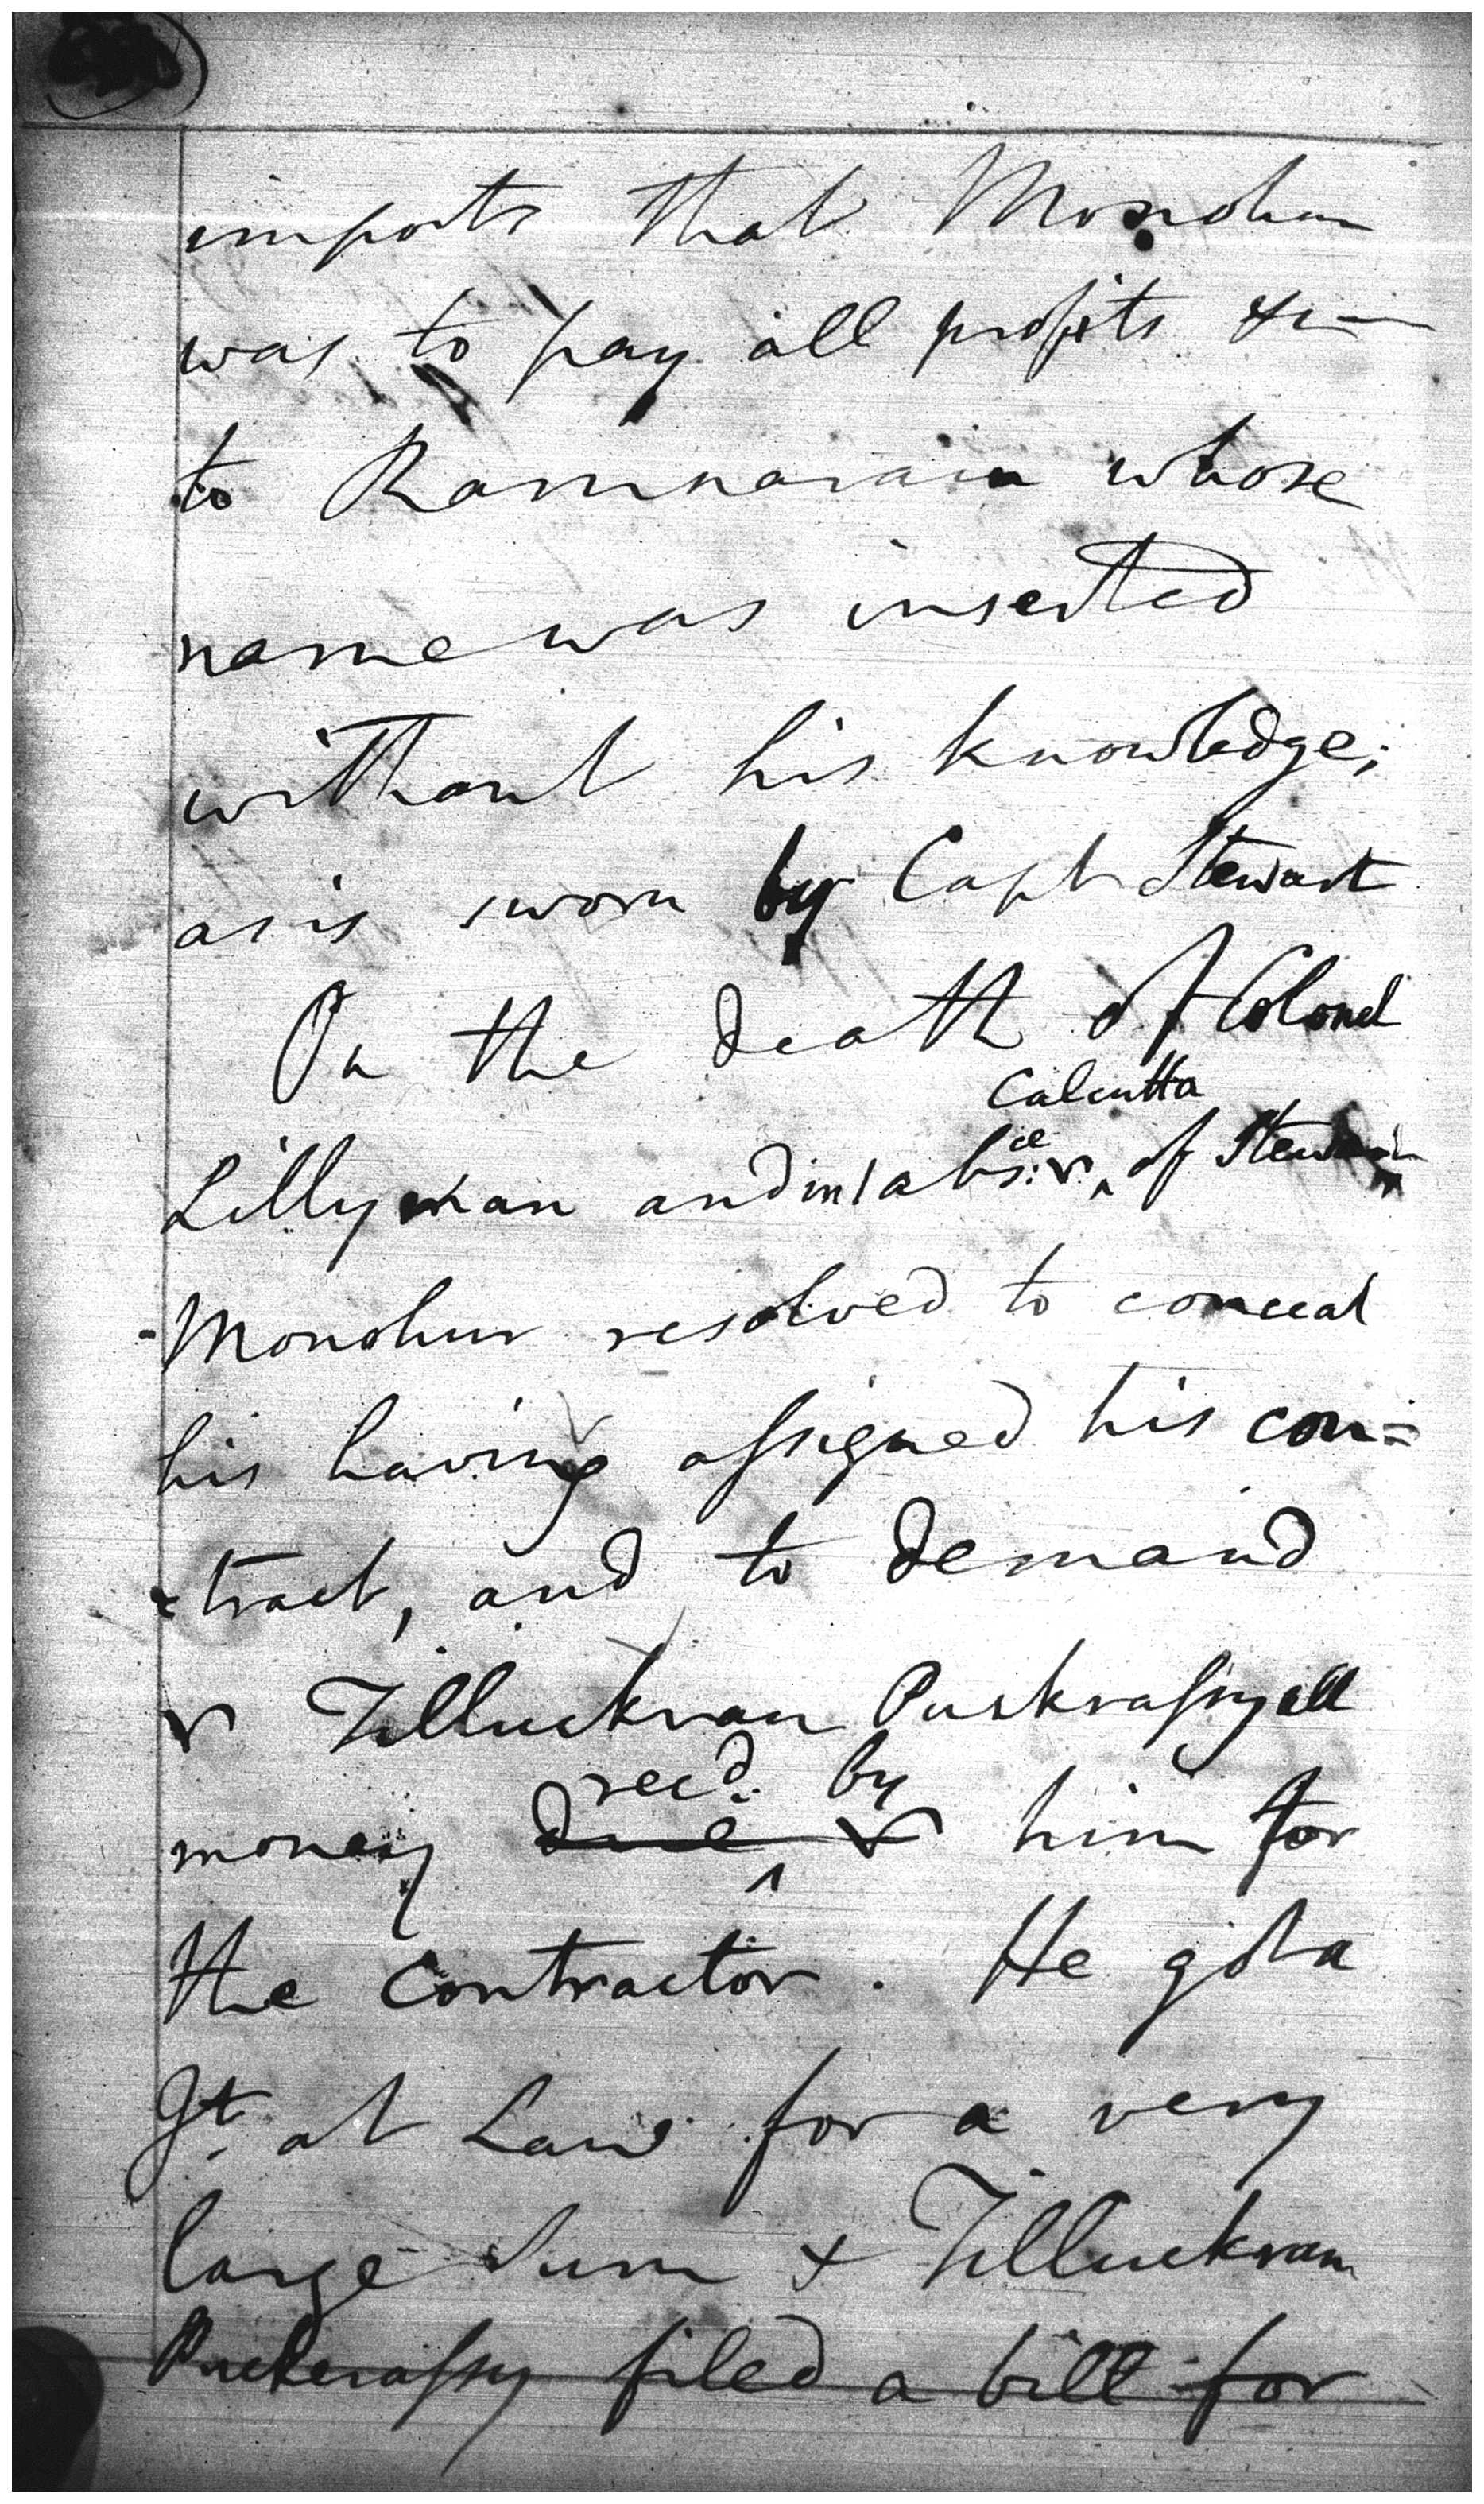 imports that Monohur
was to pay all profits &c—
to Ramnarain whose
name was inserted
without his knowledge;
as is sworn by Capt Stewart
On the death of Colonel
Calcutta
Lillyman and in absce: r of Stewart
Monohur resolved to conceal
his having assigned his con=
=tract, and to demand
r Tilluckram Puckrassy all
recd. by
money due r him for
the contractor. He got a
Jt. at Law for a very
large Sum + Tilluckram
Puckerassy filed a bill for